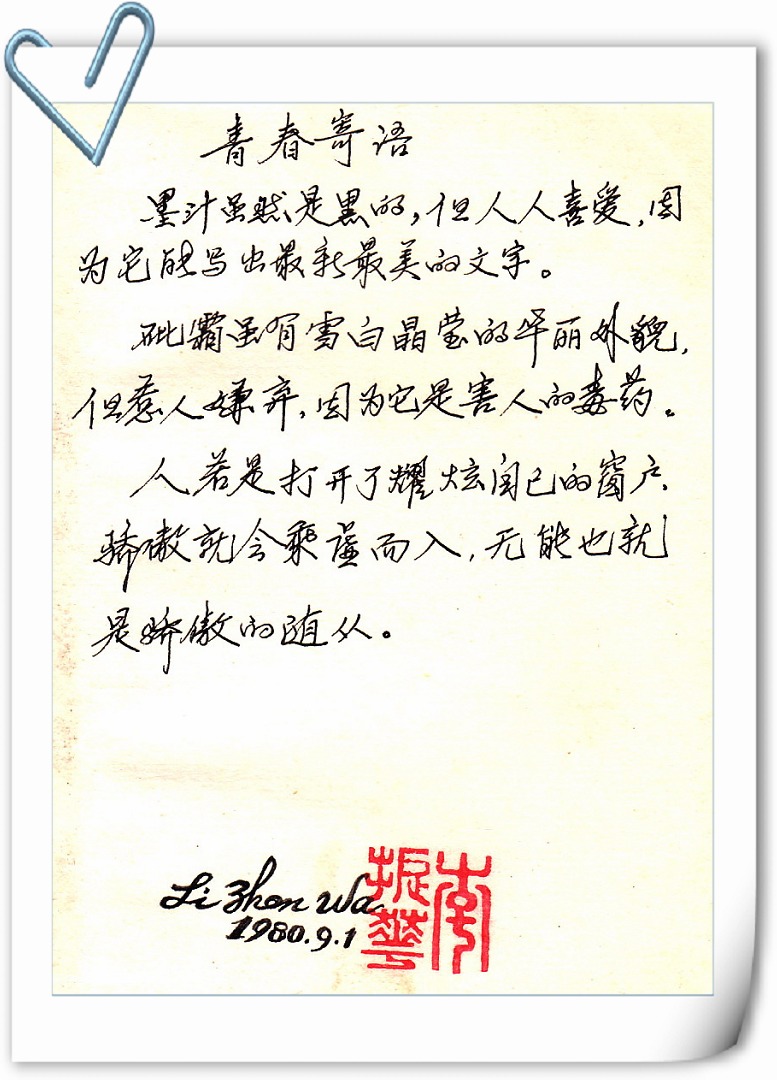 青春寄语
墨汁虽然是黑的,但人人喜爱,因
为它能写出最新最美的文字。
砒霜虽有雪白晶莹的华丽外貌,
但惹人嫌弃,因为它是害人的毒药。
人若是打开了耀炫自己的窗户,
骄傲就会乘虚而入,无能也就
是骄傲的随从。
Li Zhen Wa
1980.9.1
李振华